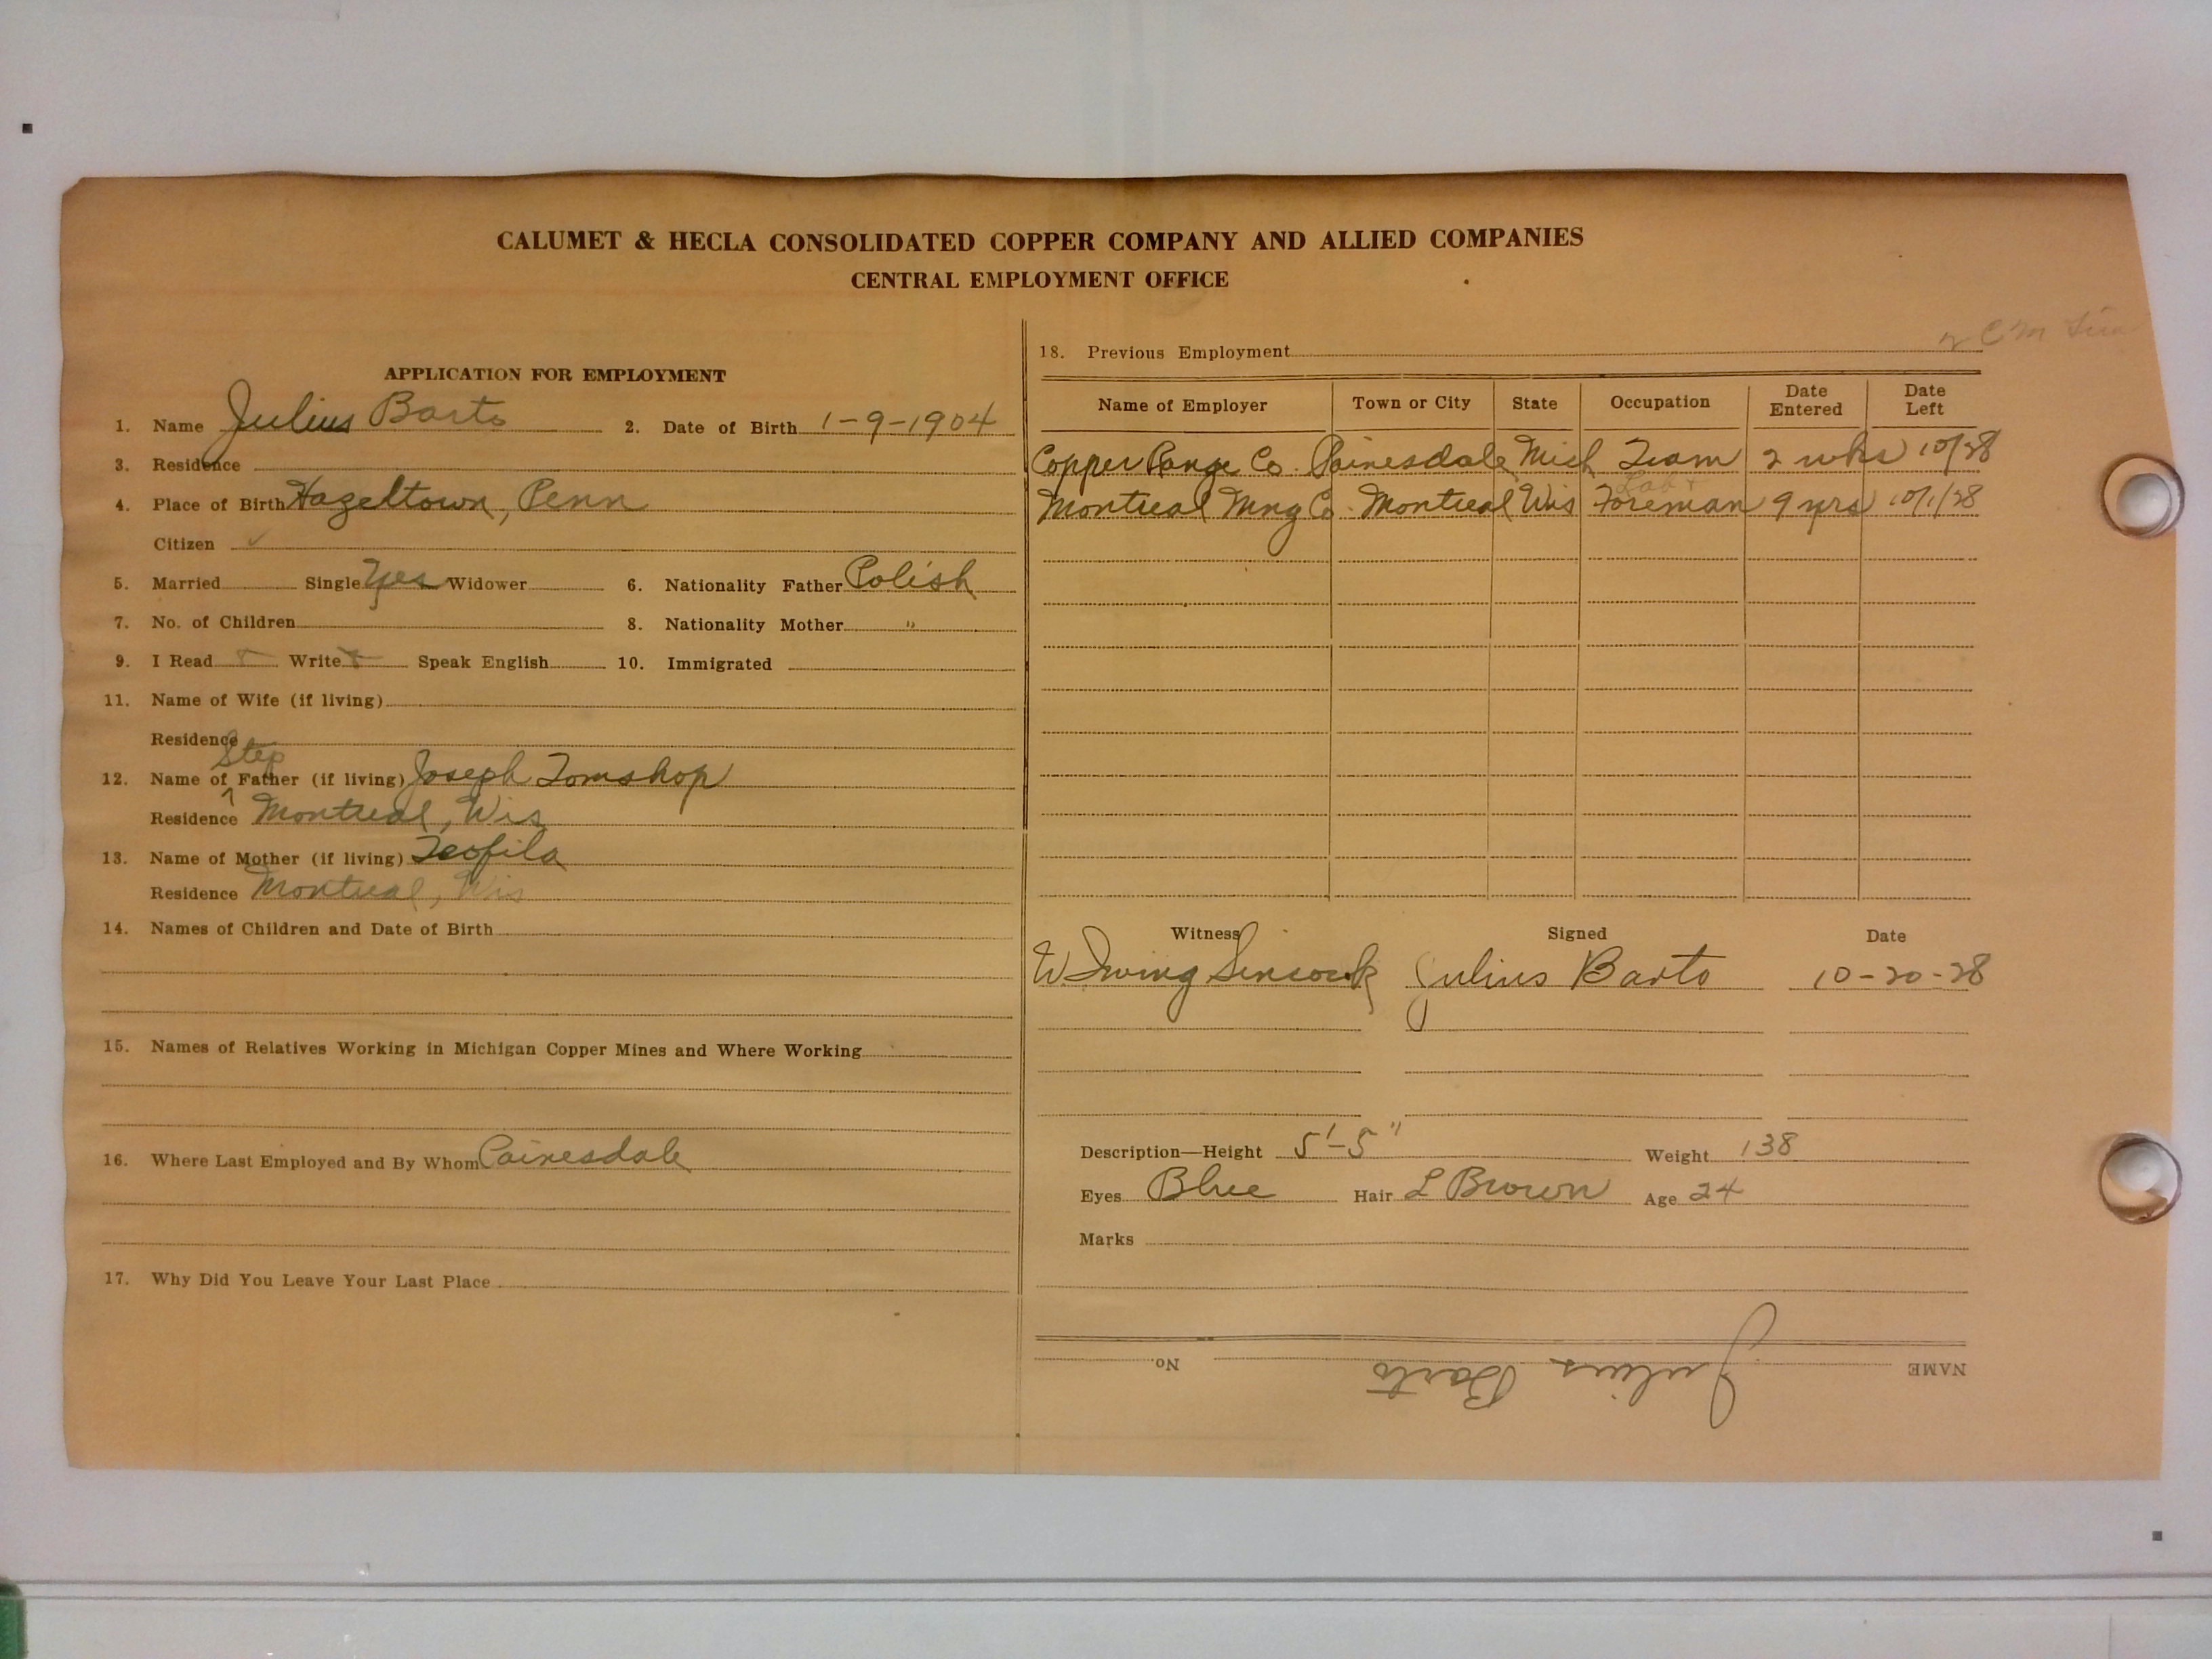 CALUMET & HECLA CONSOLIDATED COPPER COMPANY AND ALLIED COMPANIES
CENTRAL EMPLOYMENT OFFICE
APPLICATION FOR EMPLOYMENT
1. Name Julius Barto 2. Date of Birth 1-9-1904
3. Residence
4. Place of Birth Hazeltown, Penn
Citizen ✓
5. Married Single Yes Widower 6. Nationality Father Polish
7. No. of Children 8. Nationality Mother "
9. I Read Write Speak English 10. Immigrated
11. Name of Wife (if living)
Residence
Step
12. Name of ^ Father (if living) Joseph Tomshop
Residence Montreal, Wis
13. Name of Mother (if living) Teofila
Residence Montreal, Wis
14. Names of Children and Date of Birth
15. Names of Relatives Working in Michigan Copper Mines and Where Working
16. Where Last Employed and By Whom Painesdale
17. Why Did You Leave Your Last Place
18. Previous Employment
Name of Employer Town or City State Occupation Date Entered Date Left
Copper Range Co. Painesdale Mich Tram 2 wks 10/28
Montreal Mng Co. Montreal Wis Foreman 9 yrs 10/1/28
Witness Signed Date
W. Irving Julius Barto 10-20-28
Description—Height 5'-5" Weight 138
Eyes Blue Hair L Brown Age 24
Marks
NAME Julius Barto No.